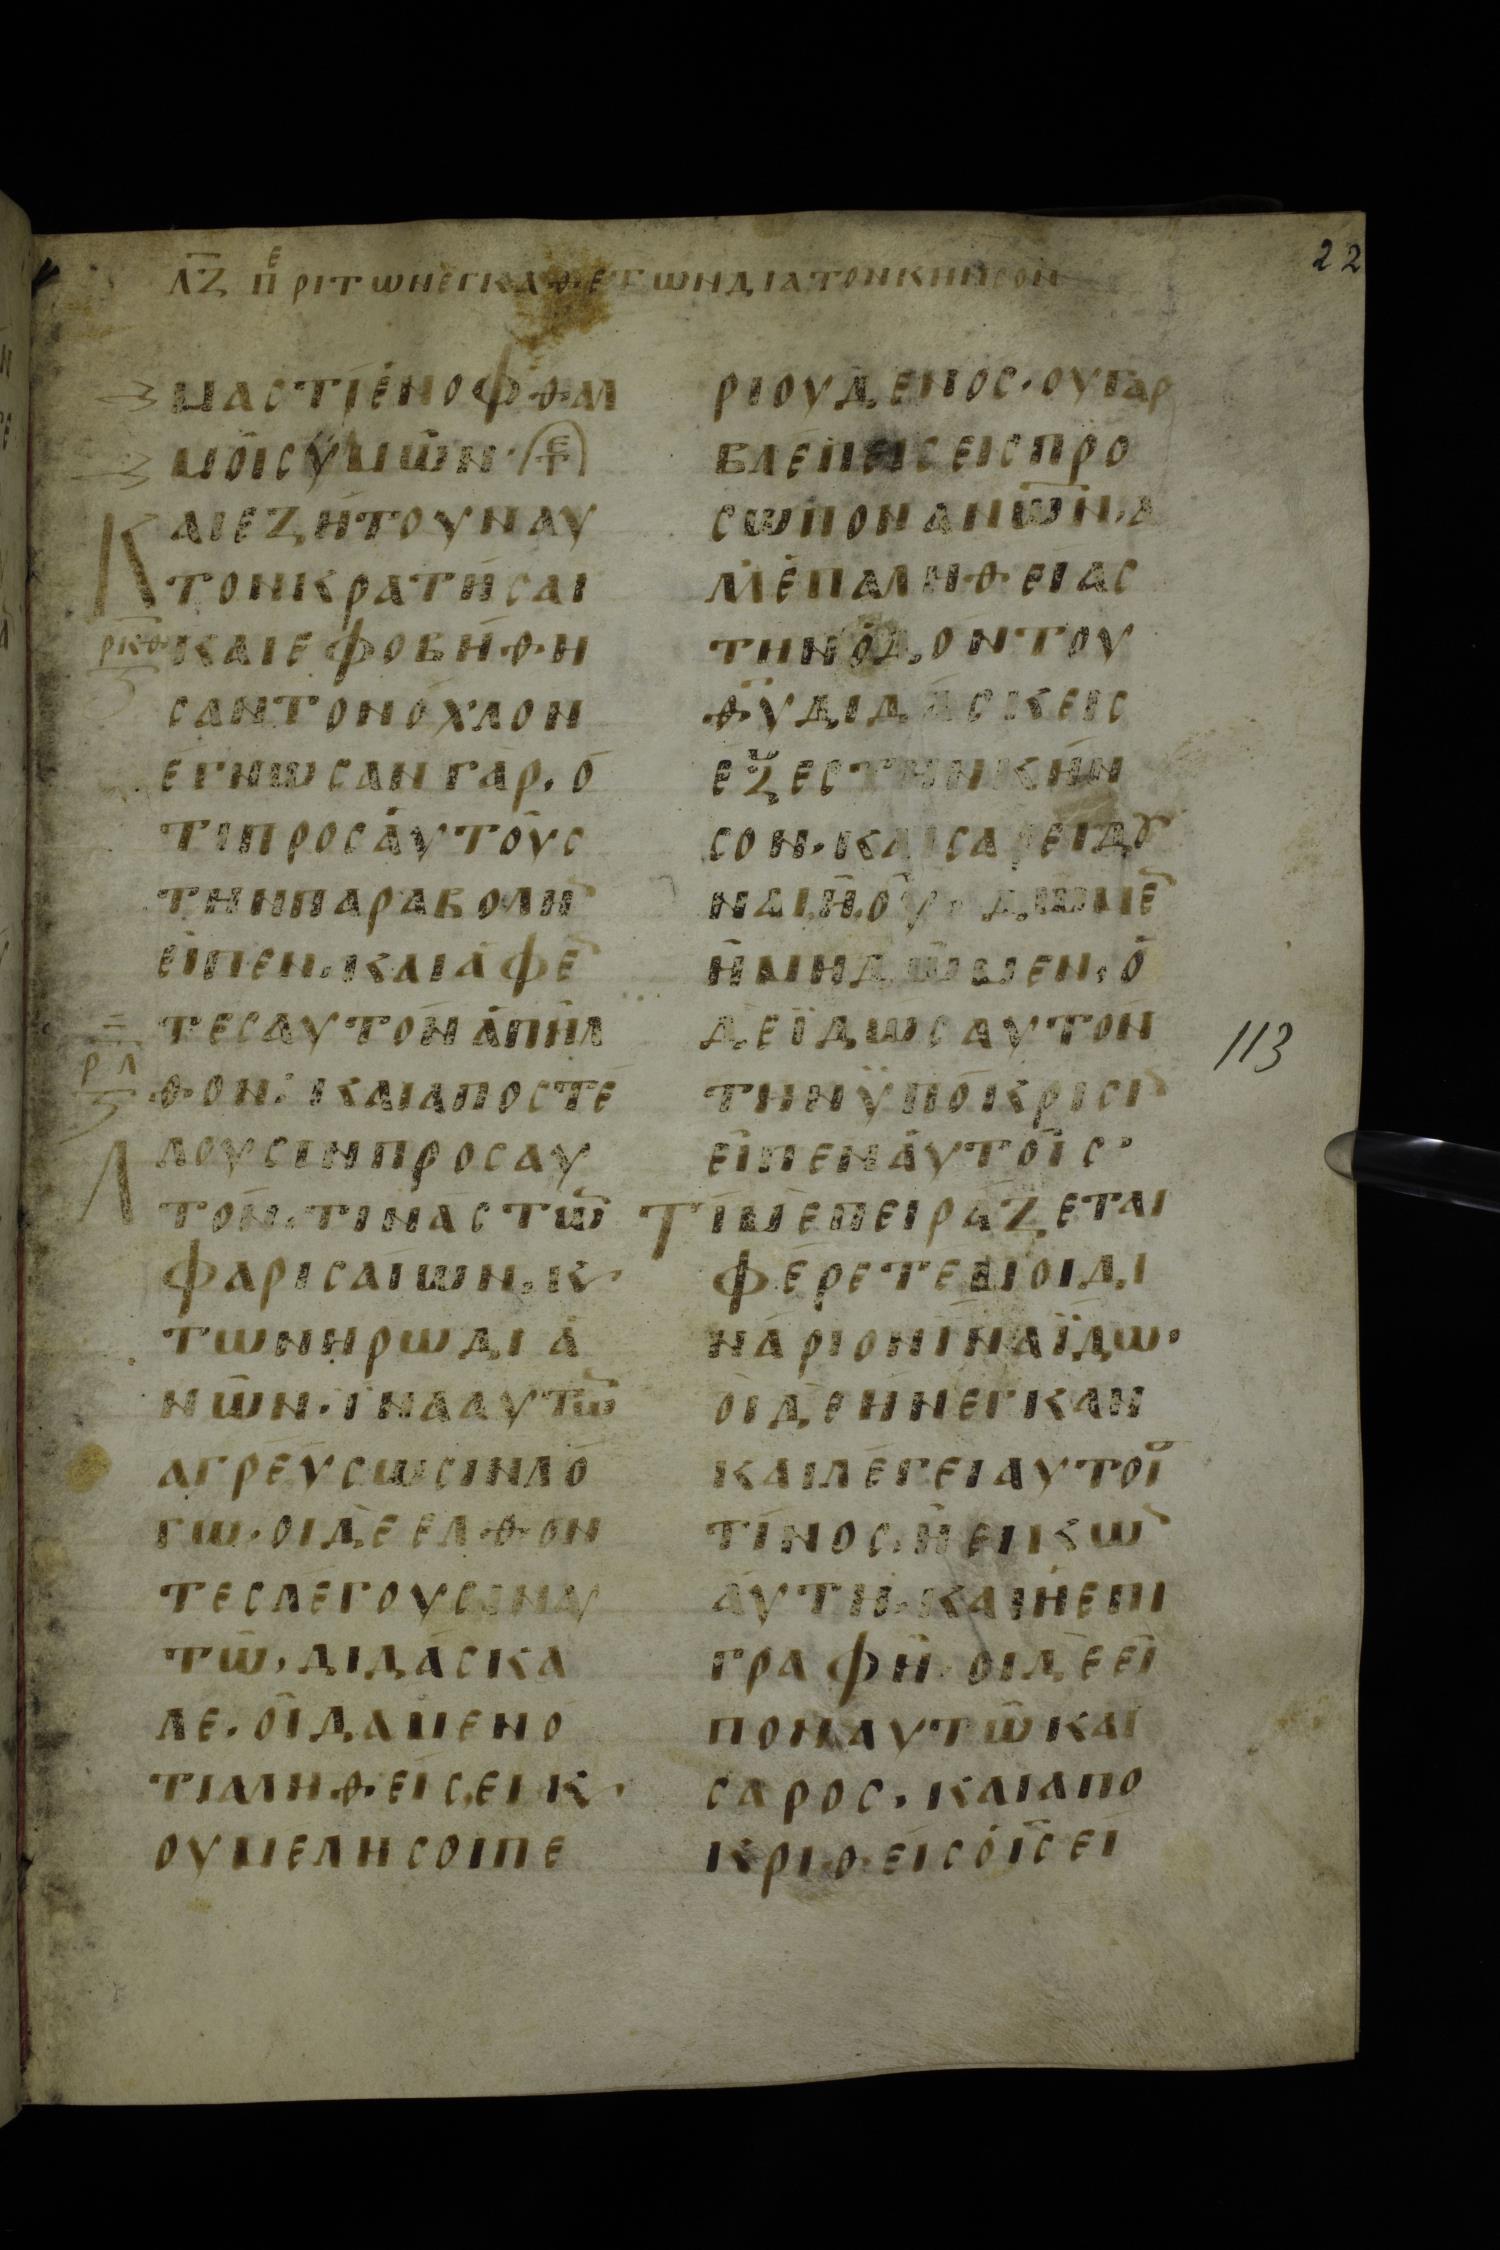 22
ΛΖ ΠΕΡΙ ΤΩΝ ΕΓΚΑΘΕΤΩΝ ΔΙΑ ΤΟΝ ΚΗΝΣΟΝ
ΜΑΣΤΙΕΝΟΦΘΑΛ
ΜΟΙΣΥΜΩΝ·
ΚΑΙΕΖΗΤΟΥΝΑΥ
ΤΟΝΚΡΑΤΗΣΑΙ
ΡΚΘ ΚΑΙΕΦΟΒΗΘΗ
ΣΑΝΤΟΝΟΧΛΟΝ
ΕΓΝΩΣΑΝΓΑΡ·Ο
ΤΙΠΡΟΣΑΥΤΟΥΣ
ΤΗΝΠΑΡΑΒΟΛΗ̅
ΕΙΠΕΝ·ΚΑΙΑΦΕ̅
ΤΕΣΑΥΤΟΝΑΠΗΛ
ΡΛ ΘΟΝ: ΚΑΙΑΠΟΣΤΕ
ΛΛΟΥΣΙΝΠΡΟΣΑΥ
ΤΟΝ·ΤΙΝΑΣΤΩ̅
ΦΑΡΙΣΑΙΩΝ·Κ
ΤΩΝΗΡΩΔΙΑ
ΝΩΝ·ΙΝΑΑΥΤΩ̅
ΑΓΡΕΥΣΩΣΙΝΛΟ
ΓΩ·ΟΙΔΕΕΛΘΟΝ
ΤΕΣΛΕΓΟΥΣΙΝΑΥ
ΤΩ·ΔΙΔΑΣΚΑ
ΛΕ·ΟΙΔΑΜΕΝΟ
ΤΙΑΛΗΘΕΙΣ,ΕΙΚ
ΟΥΜΕΛΗΣΟΙΠΕ
ΡΙΟΥΔΕΝΟΣ·ΟΥΓΑΡ
ΒΛΕΠΕΙΣΕΙΣΠΡΟ
ΣΩΠΟΝΑΝΩ̅Ν·Α
ΛΛΕΠΑΛΗΘΕΙΑΣ
ΤΗΝΟΔΟΝΤΟΥ
Θ̅Υ̅ΔΙΔΑΣΚΕΙΣ
ΕΞΕΣΤΗΝΚΗΝ
ΣΟΝ·ΚΑΙΣΑΡΕΙΔΟΥ
ΝΑΙ,Η,ΟΥ· ΔΩΜΕ̅
ΗΜΗΔΩΜΕΝ·Ο
ΔΕΪΔΩΣΑΥΤΟΝ
ΤΗΝΫΠΟΚΡΙΣΙ̅
ΕΙΠΕΝΑΥΤΟΙΣ·
113
ΤΙΜΕΠΕΙΡΑΖΕΤΑΙ
ΦΕΡΕΤΕΜΟΙΔΙ
ΝΑΡΙΟΝΙΝΑΪΔΩ·
ΟΙΔΕΗΝΕΓΚΑΝ
ΚΑΙΛΕΓΕΙΑΥΤΟΙ
ΤΙΝΟΣ·ΗΕΙΚΩ̅
ΑΥΤΗ·ΚΑΙΗΕΠΙ
ΓΡΑΦΗ·ΟΙΔΕΕΙ
ΠΟΝΑΥΤΩΚΑΙ
ΣΑΡΟΣ·ΚΑΙΑΠΟ
ΚΡΙΘΕΙΣΟΙ̅ΣΕΙ